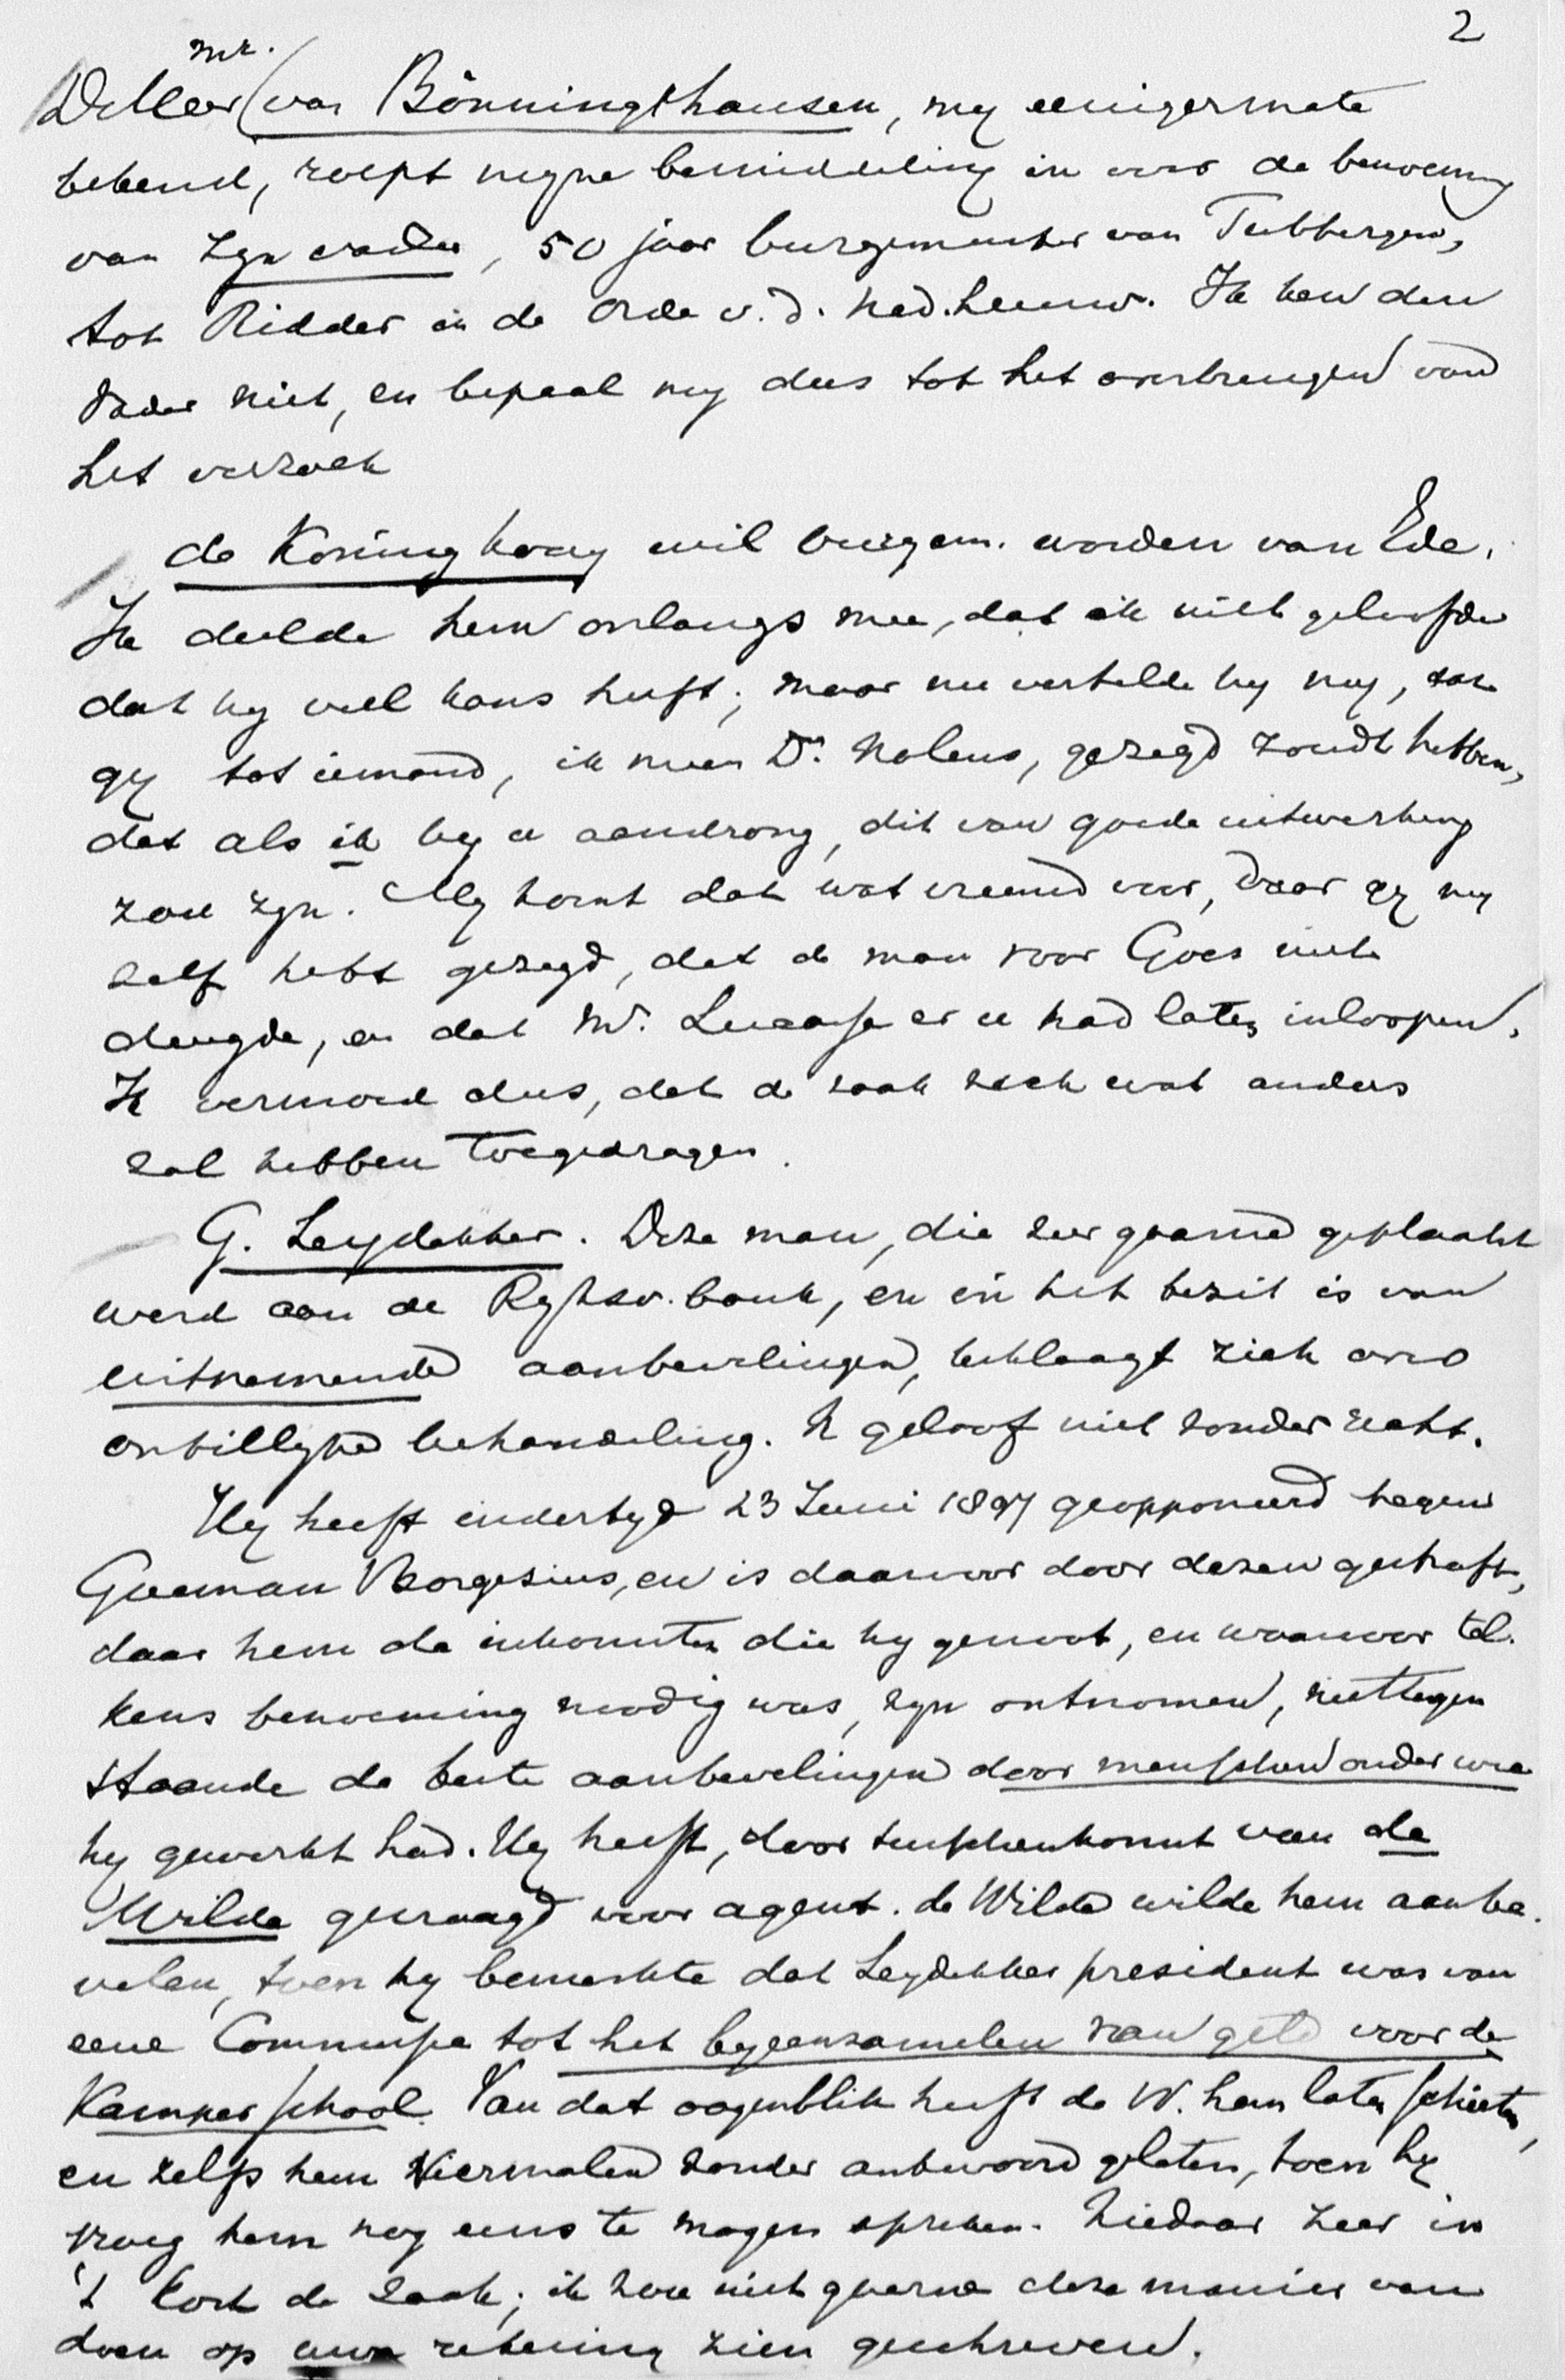 2
mr.
De Heer van Bönninghausen, my eenigermate
bekend, roept myne bemiddeling in voor de benoeming
van zyn vader, 50 jaar burgemeester van Tubbergen,
tot Ridder in de Orde v. d. Ned. Leeuw. Ik ken den
vader niet, en bepaal my dus tot het overbrengen van
het verzoek
de Koning kwam wil burgem. worden van Ede.
Ik deelde hem onlangs mee, dat ik niet geloofde
dat hy veel kans heeft; maar nu vertelde hy my, dat
gy tot iemand, ik meen Dr. Nolens, gezegd zoudt hebben,
dat als ik by u aandrong, dit van goede uitwerking
zou zyn. My komt dat wat vreemd voor, daar gy my
zelf hebt gezegd, dat de man voor Goes niet
deugde, en dat Mr. Lucasse er u had laten inloopen.
Ik vermoed dus, dat de zaak zich wat anders
zal hebben toegedragen.
G. Leydekker. Deze man, die zeer gaarne geplaatst
werd aan de Ryksv. bank, en in het bezit is van
uitnemende aanbevelingen, beklaagt zich over
onbillyke behandeling. Ik geloof niet zonder recht.
Hy heeft indertyd 23 Juni 1897 geopponeerd tegen
Goeman Borgesius, en is daarvoor door dezen gestraft,
daar hem de inkomsten die hy genoot, en waarvoor tel.
kens benoeming noodig was, zyn ontnomen, niettegen
staande de beste aanbevelingen door menschen onder wie
hy gewerkt had. Hy heeft, door tusschenkomst van de
Wilde gevraagd voor agent. de Wilde wilde hem aanbe.
velen, toen hy bemerkte dat Leydekker president was van
eene Commissie tot het byeenzamelen van geld voor de
Kamper school. Van dat oogenblik heeft de W. hem laten schieten,
en zelfs hem viermalen zonder antwoord gelaten, toen hy
vroeg hem nog eens te mogen spreken. Ziedaar zeer in
't kort de zaak; ik zou niet gaarne deze manier van
doen op uwe rekening zien geschreven.